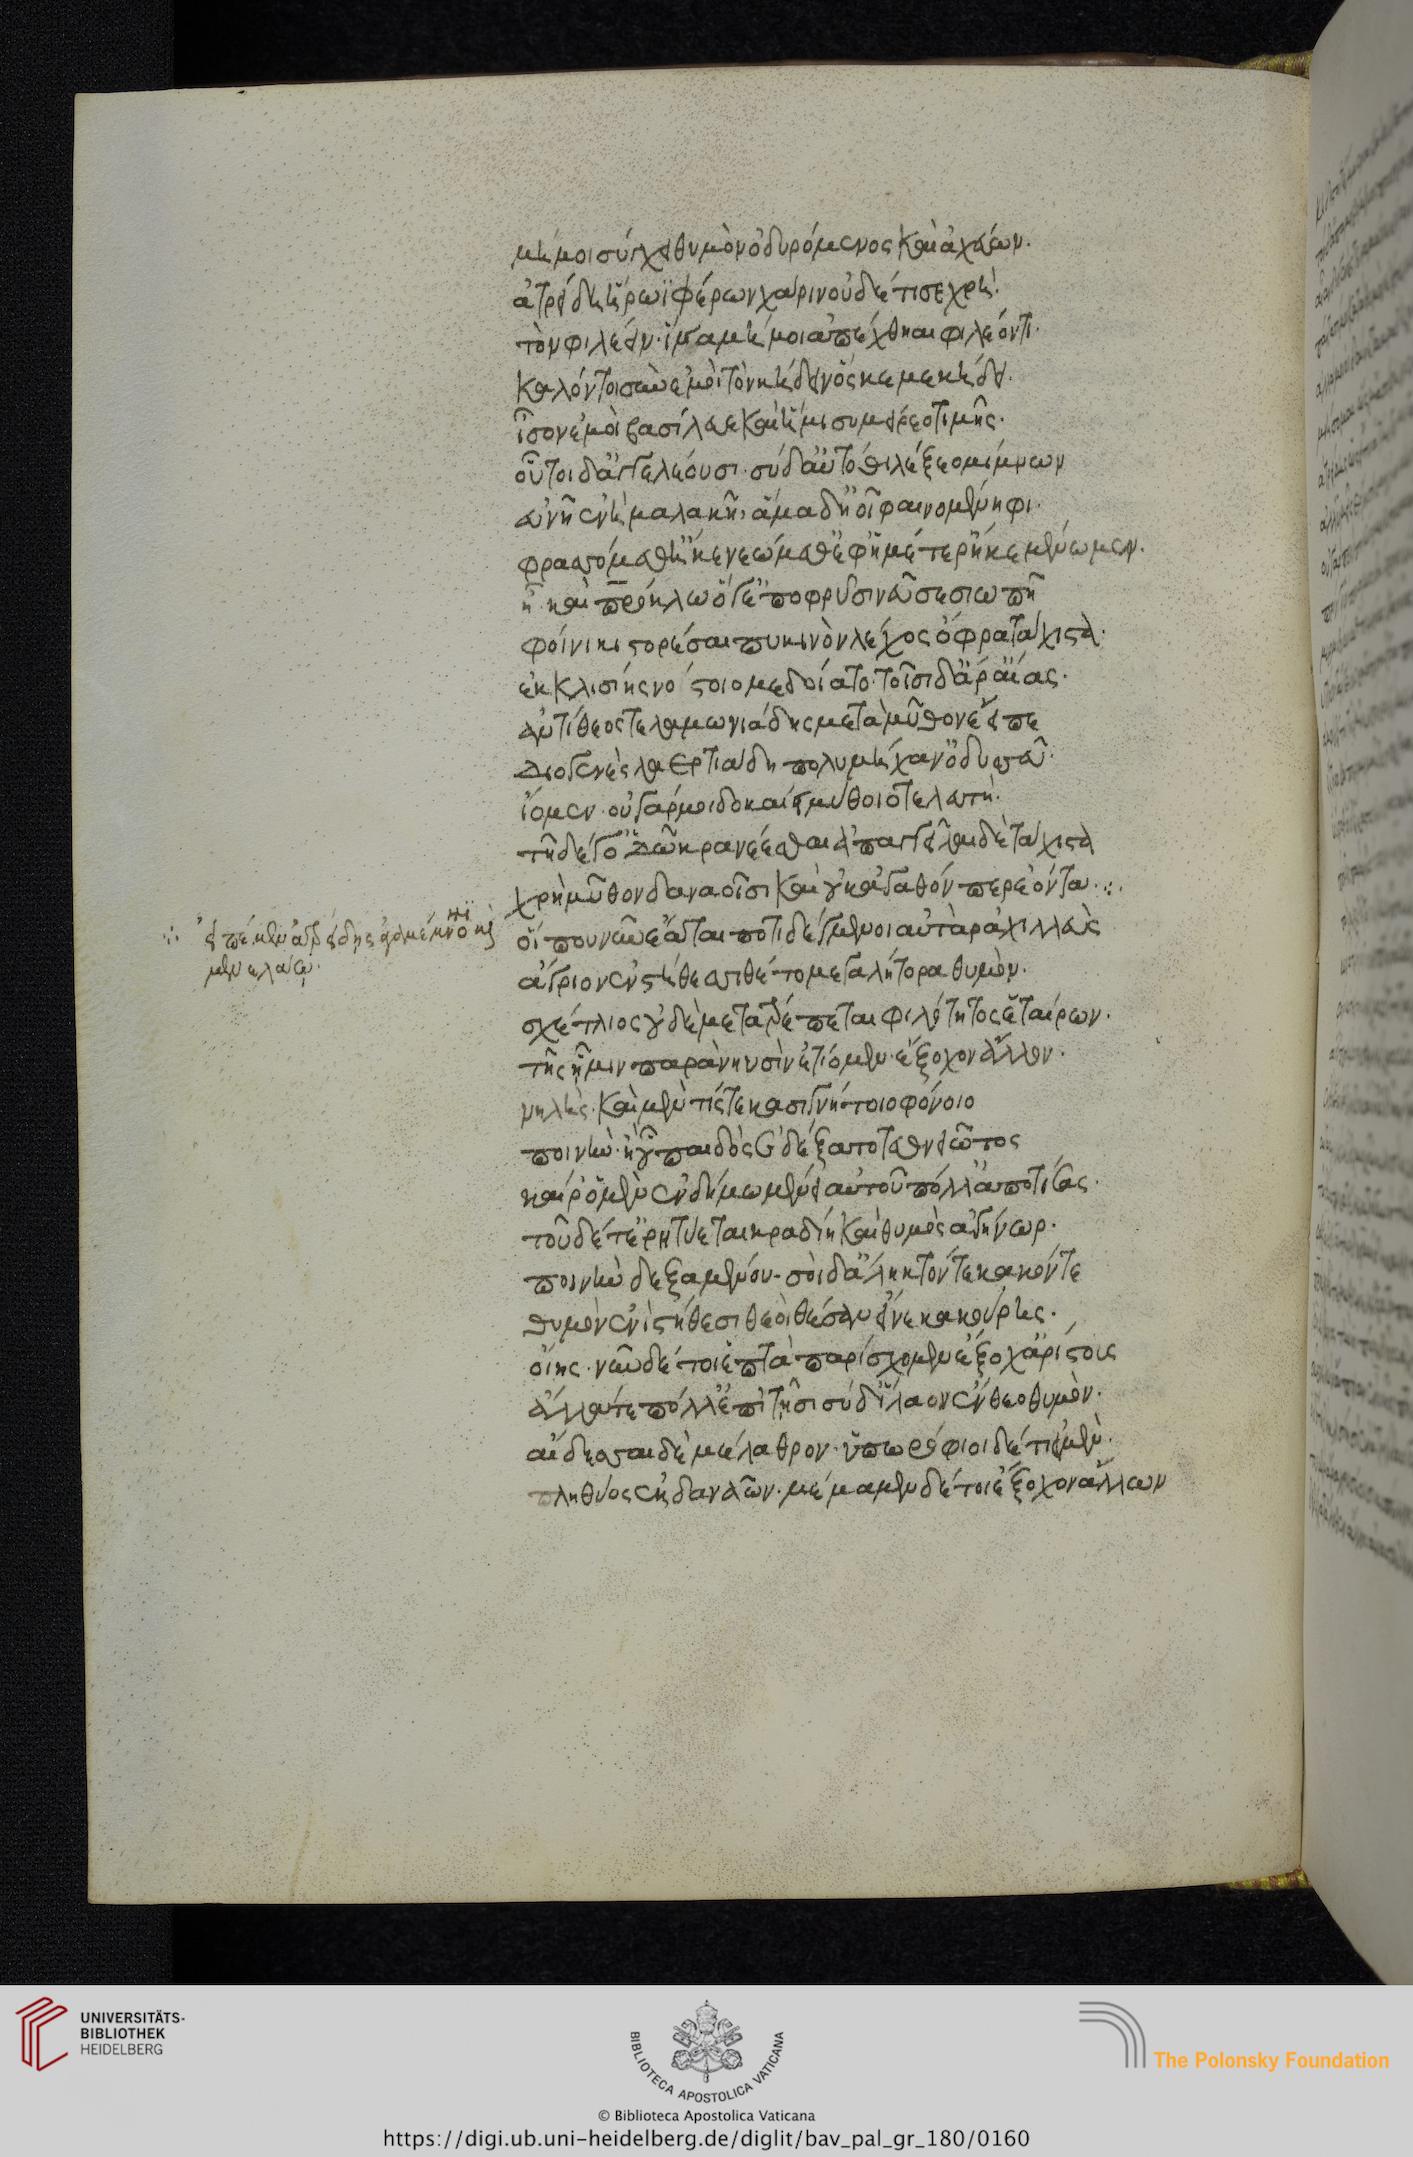 μή μοι σύγχει θυμὸν ὀδυρόμενος καὶ ἀχεύων.
ἀτρείδῃ ἥρωϊ φέρων χάριν οὐδέ τί σε χρὴ.
τὸν φιλέειν. ἵνα μή μοι ἀπέχθηαι φιλέοντι.
καλόν τοι σὺν ἐμοὶ τὸν κήδειν ὅς κε με κήδει.
ἶσον ἐμοὶ βασίλευε καὶ ἥμισυ μείρεο τιμῆς.
οὗτοι δ' ἀγγελέουσι. σὺ δ' αὐτόθι λέξεο μίμνων
εὐνῇ ἐνὶ μαλακῇ. ἅμα δ' ἠοῖ φαινομένηφι.
φρασσόμεθ' ἤ κε νεώμεθ' ἐφ' ἡμέτερ' ἤ κε μένωμεν.
ἦ καὶ πατρόκλω ὅγ' ἐπ' ὀφρύσι νεῦσε σιωπῇ
φοίνικι στορέσαι πυκινὸν λέχος ὄφρα τάχιστα.
ἐκ κλισίης νόστοιο μεδοίατο. τοῖσι δ' ἄρ' αἴας.
ἀντίθεος τελαμωνιάδης μετὰ μῦθον ἔειπε
διογενὲς λαερτιάδη πολυμήχαν' ὀδυσσεῦ.
ἴομεν. οὐ γάρ μοι δοκέει μύθοιο τελευτὴ.
τῇδέ γ' ὁδῷ κρανέεσθαι ἀπαγγεῖλαι δὲ τάχιστα
χρὴ μῦθον δαναοῖσι καὶ οὐκ ἀγαθόν περ ἐόντα. ⁘
οἵ που νῦν ἕαται ποτιδέγμενοι αὐτὰρ ἀχιλλεὺς
ἄγριον ἐν στήθεσσι θέτο μεγαλήτορα θυμὸν.
σχέτλιος οὐδὲ μετατρέπεται φιλότητος ἑταίρων.
τῆς ᾗ μιν παρὰ νηυσὶν ἐτίομεν. ἔξοχον ἄλλων.
νηλὴς. καὶ μὲν τίς τε κασιγνήτοιο φόνοιο
ποινὴν. ἢ οὗ παιδὸς ἐδέξατο τεθνειῶτος
καί ῥ' ὁ μὲν ἐν δήμω μένει αὐτοῦ πόλλ' ἀποτίσας.
τοῦ δέ τ' ἐρητύεται κραδίη καὶ θυμὸς ἀγήνωρ.
ποινὴν δεξαμένου. σοὶ δ' ἄληκτόν τε κακόν τε
θυμὸν ἐνὶ στήθεσι θεοὶ θέσαν εἵνεκα κούρης.
οἴης. νῦν δέ τοι ἑπτὰ παρίσχομεν ἔξοχ' ἀρίστους
ἄλλα τε πόλλ' ἐπὶ τῇσι σὺ δ' ἵλαον ἔνθεο θυμὸν.
αἴδεσσαι δὲ μέλαθρον. ὑπωρόφιοι δέ τοι εἰμὲν.
πληθύος ἐκ δαναῶν. μέμαμεν δέ τοι ἔξοχον ἄλλων
⁘ εἰπέμεν ἀτρείδης ἀγαμέμνονι καὶ
μενελάῳ.
UNIVERSITÄTS-
BIBLIOTHEK
HEIDELBERG
BIBLIOTECA APOSTOLICA VATICANA
The Polonsky Foundation
© Biblioteca Apostolica Vaticana
https://digi.ub.uni-heidelberg.de/diglit/bav_pal_gr_180/0160